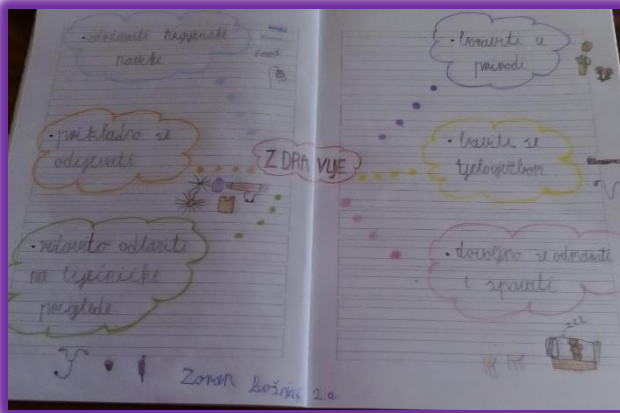 · održavati higijenske
navike
· prikladno se
odijevati
· redovito odlaziti
na liječničke
preglede
ZDRAVLJE
· boraviti u
prirodi
· baviti se
tjelovježbom
· dovoljno se odmarati
i spavati
zzz
Zoran 2.a